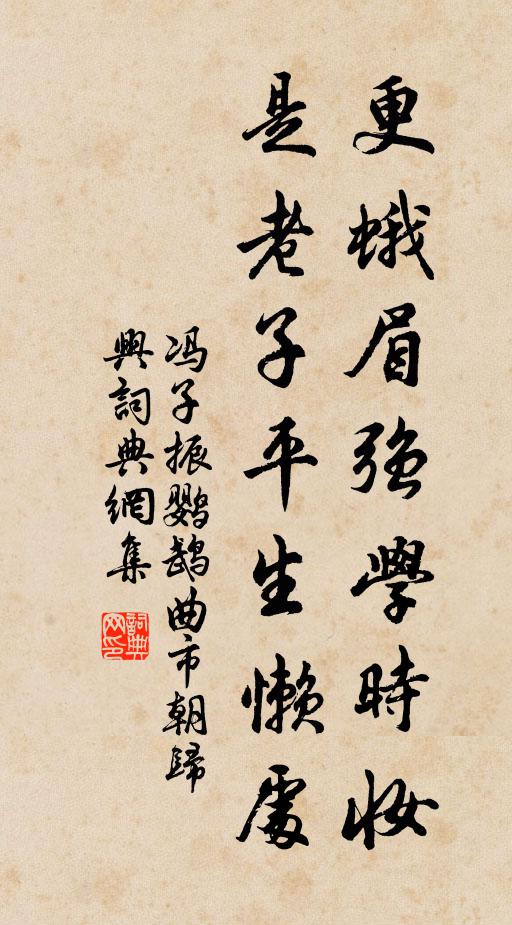 更蛾眉強學時妝
是老子平生懶處
冯子振鹦鹉曲市朝歸
興詞典網集
詞典网印